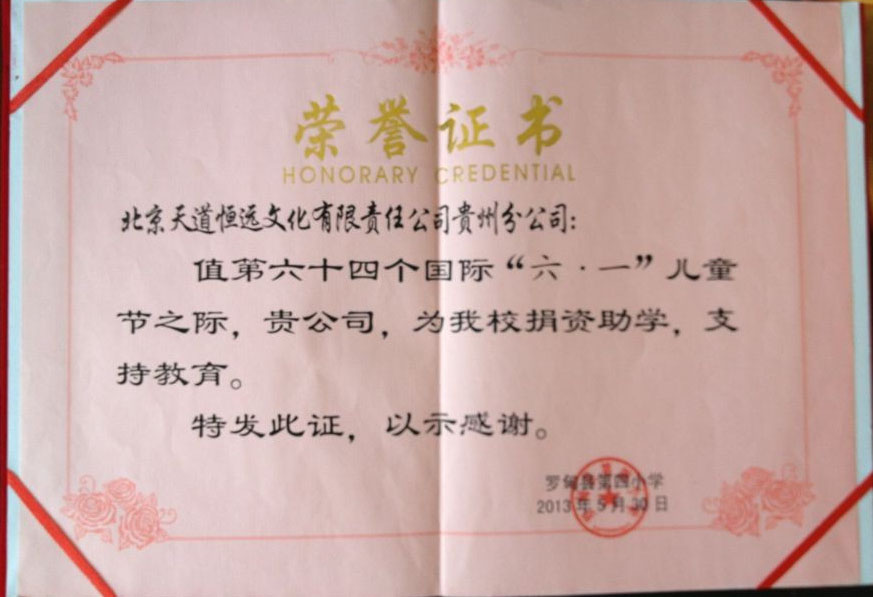 荣誉证书
HONORARY CREDENTIAL
北京天道恒远文化有限责任公司贵州分公司：
值第六十四个国际“六·一”儿童
节之际，贵公司，为我校捐资助学，支
持教育。
特发此证，以示感谢。
罗甸县第四小学
2013年5月30日